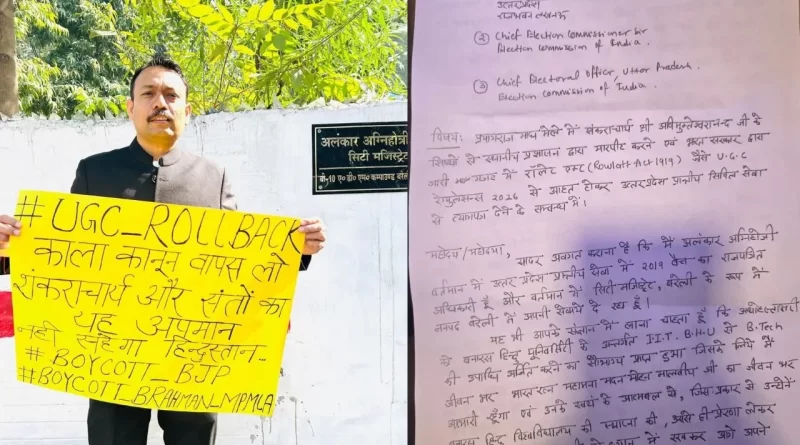 #UGC_ROLLBACK
काला कानून वापस लो
शंकराचार्य और संतों का
यह अपमान
नहीं सहेगा हिन्दुस्तान..
#BOYCOTT_BJP
#BOYCOTT_BRAHMAN_MPMLA
अलंकार अग्निहोत्री
सिटी मजिस्ट्रेट
उत्तरप्रदेश
राजभवन लखनऊ
② Chief Election Commissioner Sir
Election Commission of India.
③ Chief Electoral Officer, Uttar Pradesh.
Election Commission of India.
विषय: प्रयागराज माघ मेले में शंकराचार्य श्री अविमुक्तेश्वरानन्द जी के
शिष्यों से स्थानीय प्रशासन द्वारा मारपीट करने एवं भारत सरकार द्वारा
जारी रॉलेट एक्ट (Rowlatt Act 1919) जैसे U.G.C
रेगुलेसन्स 2026 से आहत होकर उत्तरप्रदेश प्रान्तीय सिविल सेवा
से त्यागपत्र देने के सम्बन्ध में।
महोदय/महोदया,
सादर अवगत कराना है कि मैं अलंकार अग्निहोत्री
वर्तमान में उत्तर प्रदेश प्रान्तीय सेवा में 2019 बैच का राजपत्रित
अधिकारी हूँ और वर्तमान में सिटी मजिस्ट्रेट, बरेली के रूप में
जनपद बरेली में अपनी सेवायें दे रहा हूँ।
यह भी आपके संज्ञान में लाना चाहता हूँ कि
को बनारस हिन्दू यूनिवर्सिटी के अन्तर्गत I.I.T. B.H.U से B.Tech
की उपाधि अर्जित करने का सौभाग्य प्राप्त हुआ जिसके लिये मैं
जीवन भर भारत रत्न महामना मदन मोहन मालवीय जी का जीवन भर
आभारी रहूँगा एवं उनके स्वयं के आत्मबल से, जिस प्रकार से उन्होंने
हिन्दू विश्वविद्यालय की स्थापना की, उससे ही प्रेरणा लेकर